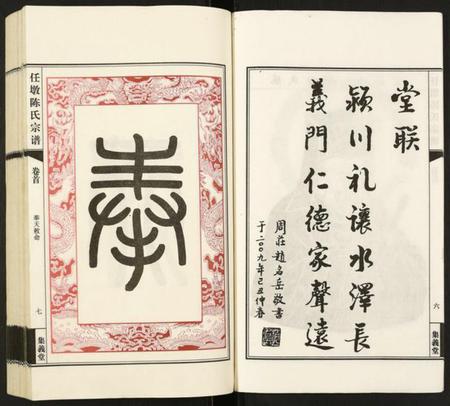 堂联
颍川礼讓水澤長
義门仁德家聲遠
周莊趙名岳敬書
于二〇〇九年己丑仲春
六
集義堂
任墩陈氏宗谱
卷首
奉天敕命
七
集義堂
奉